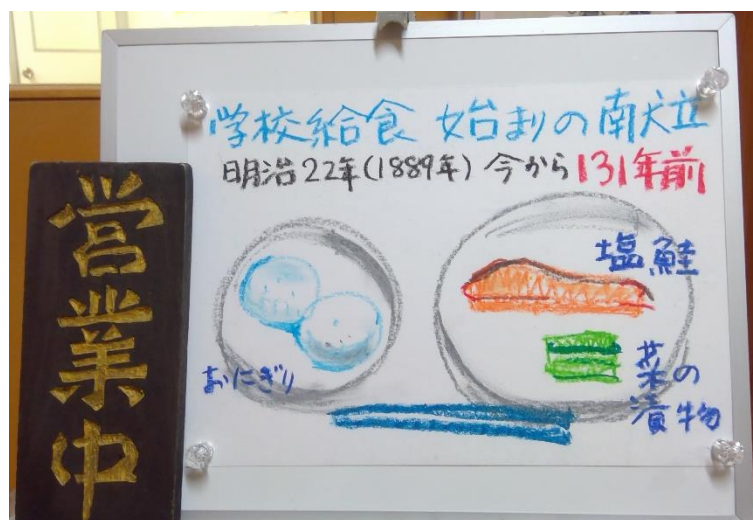 学校給食 始まりの献立
明治22年(1889年) 今から131年前
営業中
おにぎり
塩鮭
菜の
漬物